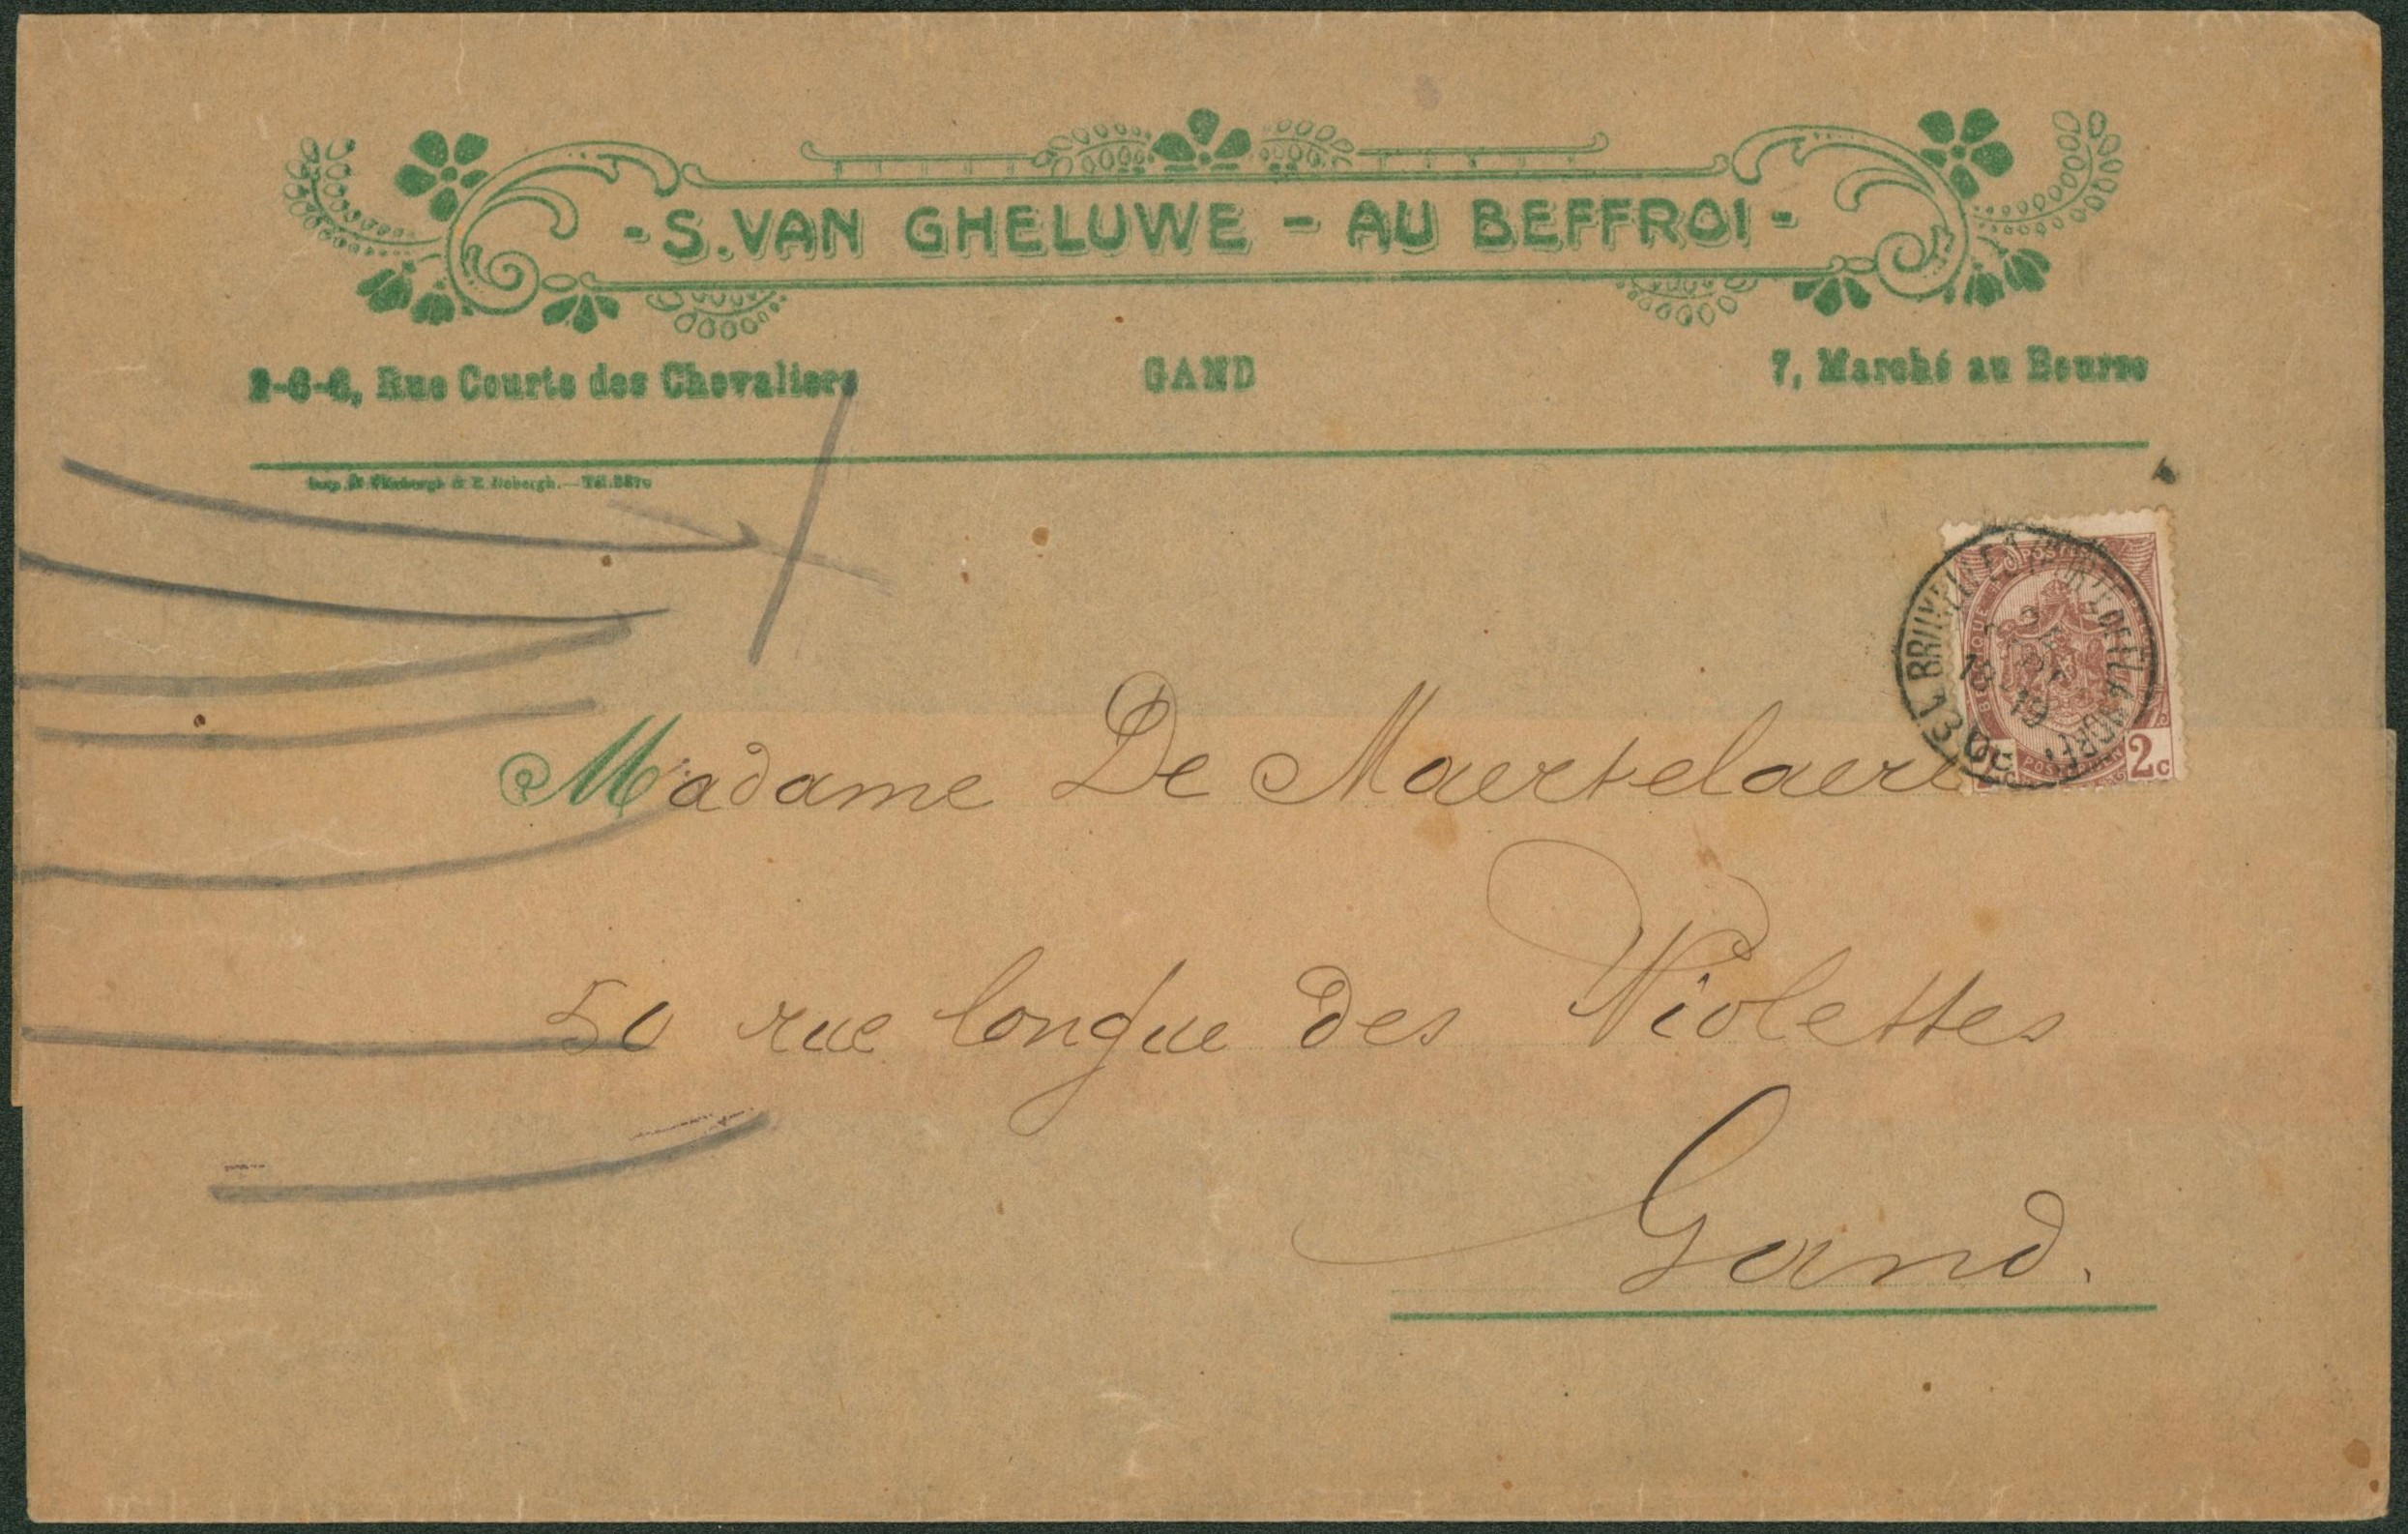 - S. VAN GHELUWE - AU BEFFROI -
2-6-6, Rue Courte des Chevaliers GAND 7, Marché au Beurre
& E. Debergh.—Tél.
BRUXELLES
BELGIQUE
2c
Madame De Maertelaere
50 rue longue des Violettes
Gand.